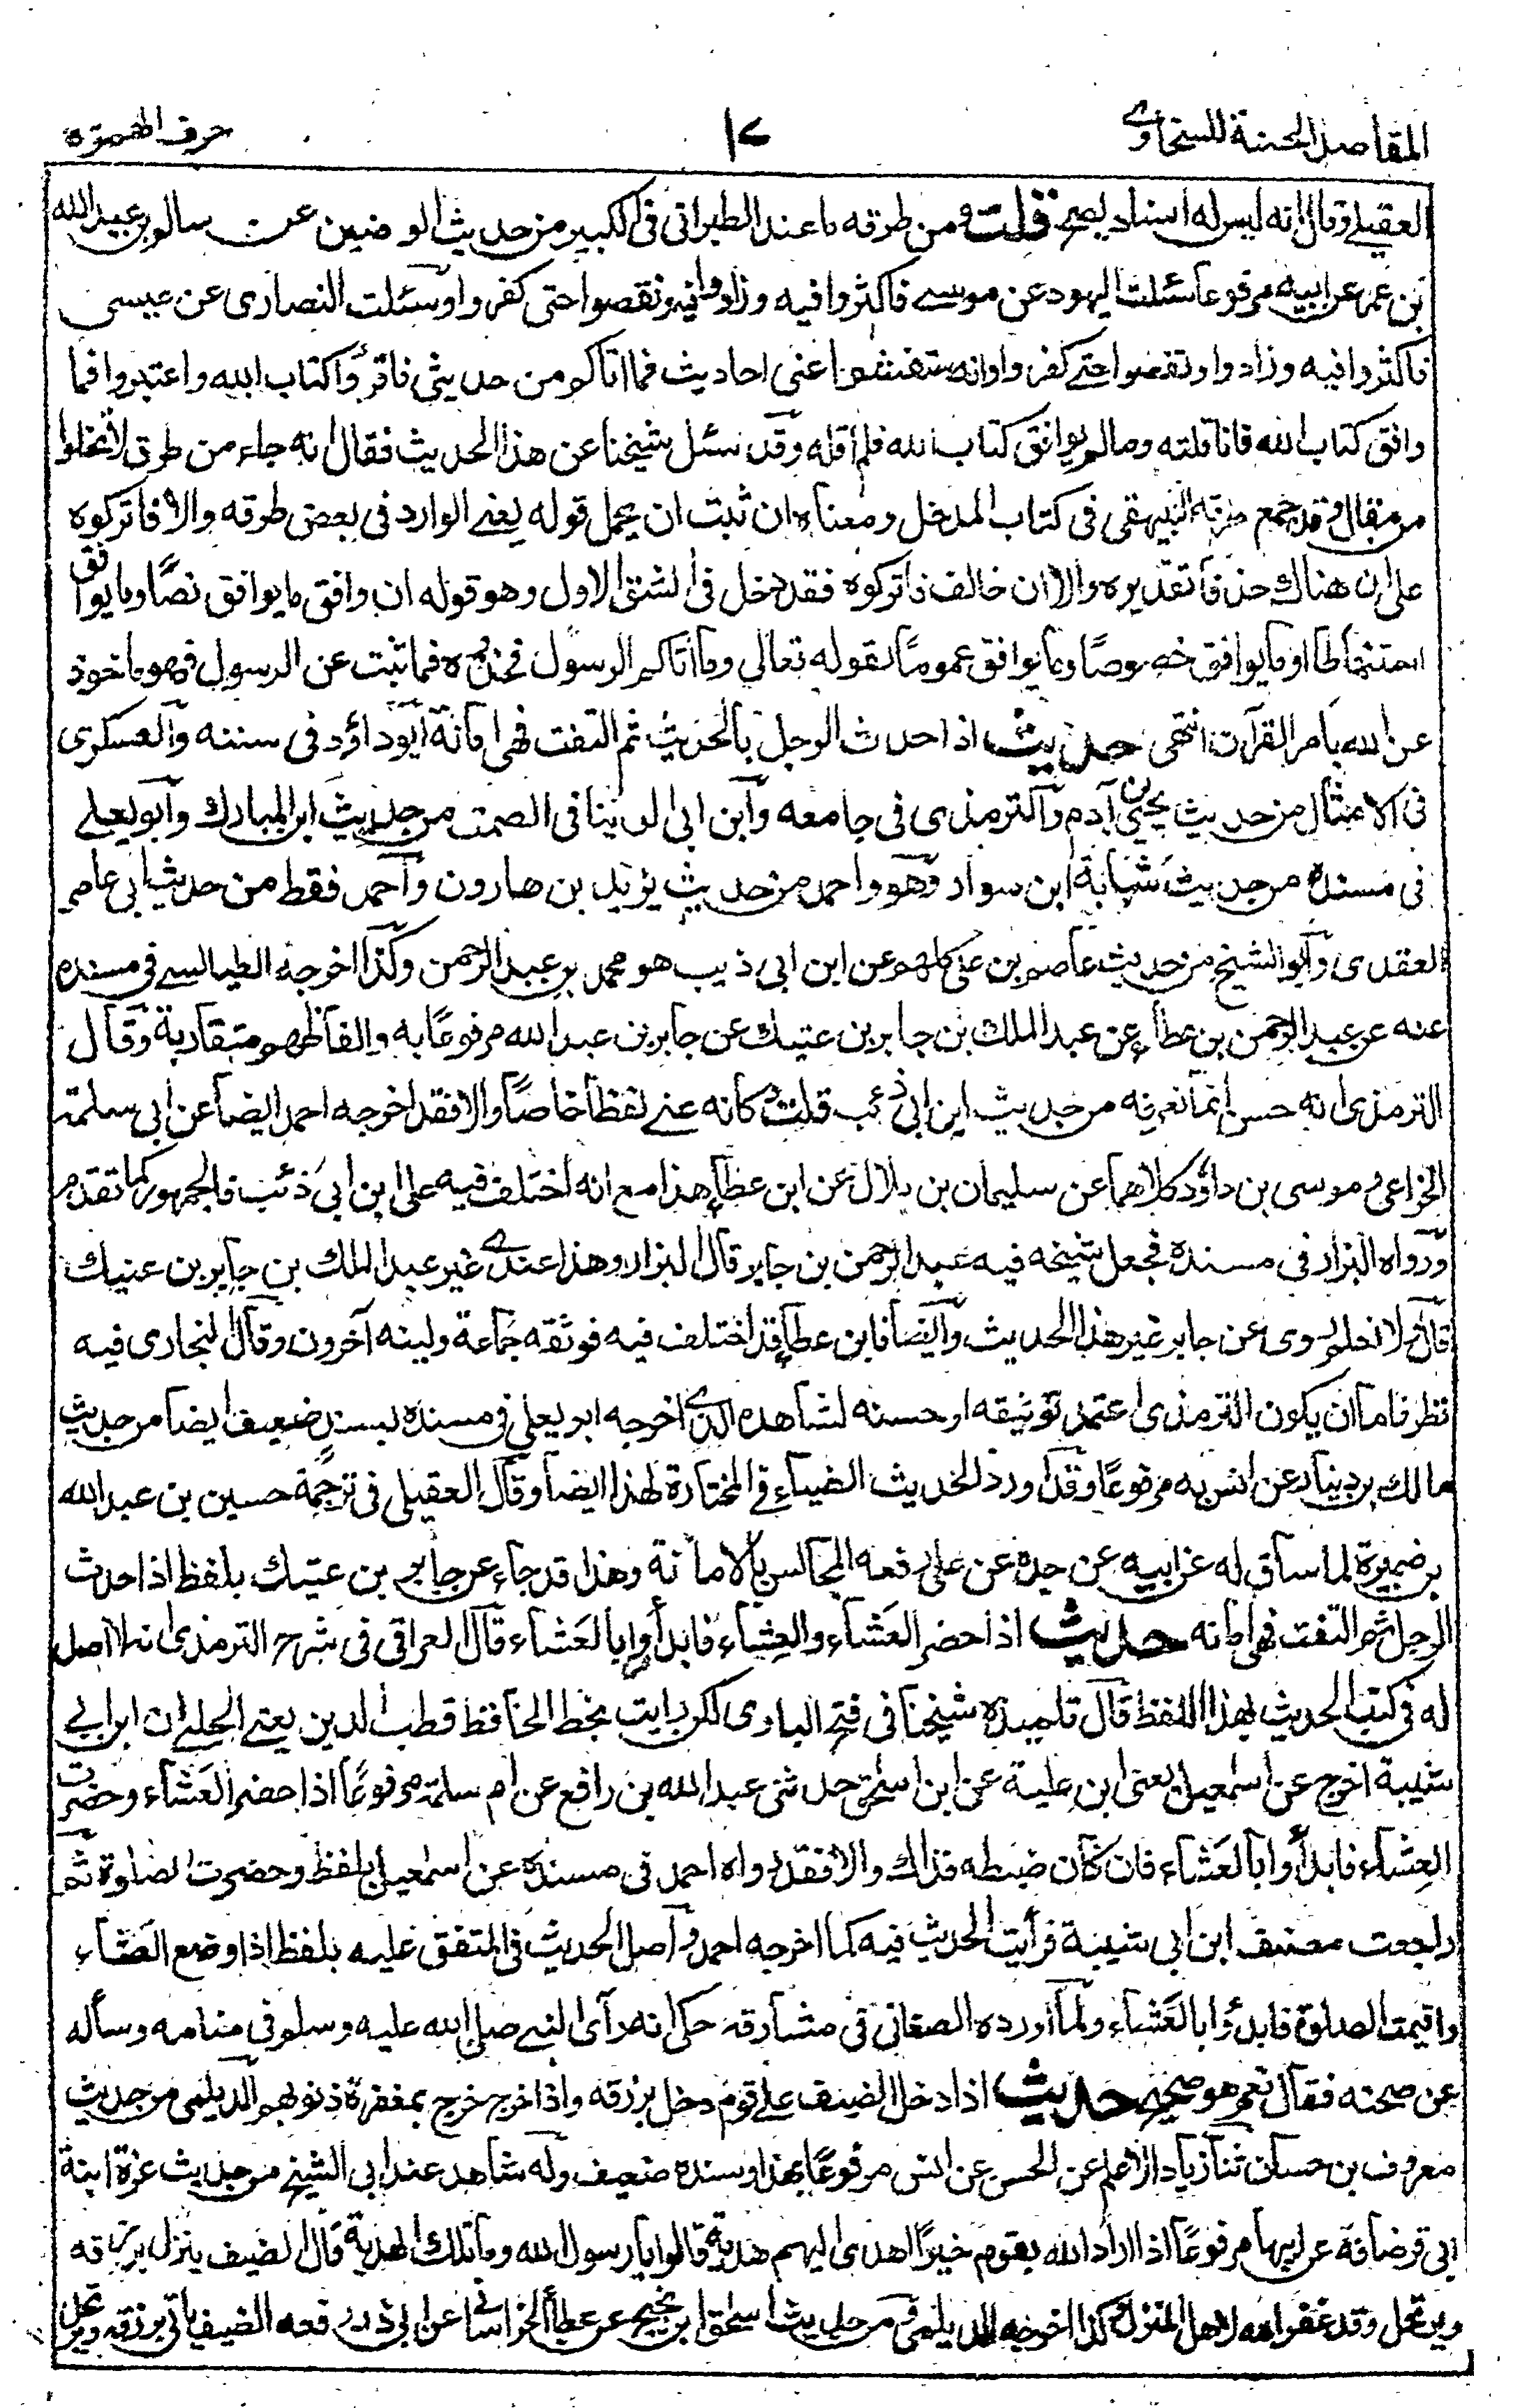 المقاصد الحسنة للسخاوي
١٤
حرف الهمزة
العقيلي وقال انه ليس له اسناد يصح قلت ومن طرقه ما عند الطبراني في الكبير من حديث الوضين عن سالم بن عبد الله
بن عمر عن ابيه مرفوعا سئلت اليهود عن موسى فاكثروا فيه وزادوا ونقصوا حتى كفروا وسئلت النصارى عن عيسى
فاكثروا فيه وزادوا ونقصوا حتى كفروا وانه ستفشو عني احاديث فما اتاكم من حديثي فاقرؤا كتاب الله واعتبروا فما
وافق كتاب الله فانا قلته وما لم يوافق كتاب الله فلم اقله وقد سئل شيخنا عن هذا الحديث فقال انه جاء من طرق لا تخلوا
من مقال وقد جمع طرقه البيهقي في كتاب المدخل ومعناه ان ثبت ان يحمل قوله يعني الوارد في بعض طرقه والا فاتركوه
على ان هناك حذفا تقديره والا ان خالف فاتركوه فقد دخل في الشق الاول وهو قوله ان وافق ما يوافق نصًا وما يوافق
استنباطا او ما يوافق خصوصًا وما يوافق عمومًا لقوله تعالى وما اتاكم الرسول فخذوه فما ثبت عن الرسول فهو ماخوذ
عن الله بامر القرآن انتهى حديث اذا حدث الرجل بالحديث ثم التفت فهي امانة ابوداؤد في سننه والعسكري
في الامثال من حديث يحيى بن آدم والترمذي في جامعه وابن ابي الدنيا في الصمت من حديث ابن المبارك وابو يعلى
في مسنده من حديث شبابة ابن سوار وهو واحمد من حديث يزيد بن هارون واحمد فقط من حديث ابي عامر
العقدي وابو الشيخ من حديث عاصم بن علي كلهم عن ابن ابي ذيب هو محمد بن عبد الرحمن وكذا اخرجه الطيالسي في مسنده
عنه عن عبد الرحمن بن عطاء عن عبد الملك بن جابر بن عتيك عن جابر بن عبد الله مرفوعًا به والفاظهم متقاربة وقال
الترمذي انه حسن انما نعرفه من حديث ابن ابي ذئب قلت كانه عنى لفظا خاصًا والا فقد اخرجه احمد ايضا عن ابي سلمة
الخزاعي وموسى بن داؤد كلاهما عن سليمان بن بلال عن ابن عطاء هذا مع انه اختلف فيه على ابن ابي ذئب فالجمهور كما تقدم
ورواه البزار في مسنده فجعل شيخه فيه عبد الرحمن بن جابر قال البزار وهذا عندي غير عبد الملك بن جابر بن عتيك
قال لا نعلم روى عن جابر غير هذا الحديث وايضا فابن عطاء قد اختلف فيه فوثقه جماعة ولينه آخرون وقال البخاري فيه
نظر فاما ان يكون الترمذي اعتمد توثيقه او حسنه لشاهده الذي اخرجه ابو يعلى في مسنده بسند ضعيف ايضا من حديث
مالك بن دينار عن انس به مرفوعًا وقد اورد الحديث الضياء في المختارة لهذا ايضا وقال العقيلي في ترجمة حسين بن عبد الله
بن ضميرة لما ساق له عن ابيه عن جده عن علي رفعه المجالس بالامانة وهذا قد جاء عن جابر بن عتيك بلفظ اذا حدث
الرجل ثم التفت فهي امانه حديث اذا حضر العَشاء والعِشاء فابدأوا بالعَشاء قال العراقي في شرح الترمذي انه لا اصل
له في كتب الحديث بهذا اللفظ قال تلميذه شيخنا في فتح الباري لكن رايت بخط الحافظ قطب الدين يعني الحلبي ان ابن ابي
شيبة اخرج عن اسمعيل يعني ابن علية عن ابن اسحق حدثني عبد الله بن رافع عن ام سلمة مرفوعًا اذا حضر العَشاء وحضرت
العِشاء فابدأوا بالعَشاء فان كان ضبطه فذاك والا فقد رواه احمد في مسنده عن اسمعيل بلفظ وحضرت الصلوة ثم
راجعت مصنف ابن ابي شيبة فرأيت الحديث فيه كما اخرجه احمد واصل الحديث في المتفق عليه بلفظ اذا وضع العَشاء
واقيمت الصلوة فابدؤا بالعَشاء ولما اورده الصغاني في مشارقه حكى انه رآى النبي صلى الله عليه وسلم في منامه وسأله
عن صحته فقال نعم هو صحيح حديث اذا دخل الضيف على قوم دخل برزقه واذا خرج خرج بمغفرة ذنوبهم الديلمي من حديث
معروف بن حسان ثنا زياد الاعلم عن الحسن عن انس مرفوعًا بهذا وسنده ضعيف وله شاهد عند ابي الشيخ من حديث عزة ابنة
ابي قرضافة عن ابيها مرفوعًا اذا اراد الله بقوم خيرًا اهدى اليهم هدية قالوا يا رسول الله وما تلك الهدية قال الضيف ينزل برزقه
ويرتحل وقد غفر الله لاهل المنزل كذا اخرجه الديلمي من حديث اسحق ابن نجيح عن عطاء الخراساني عن ابي ذر رفعه الضيف ياتي برزقه ويرتحل